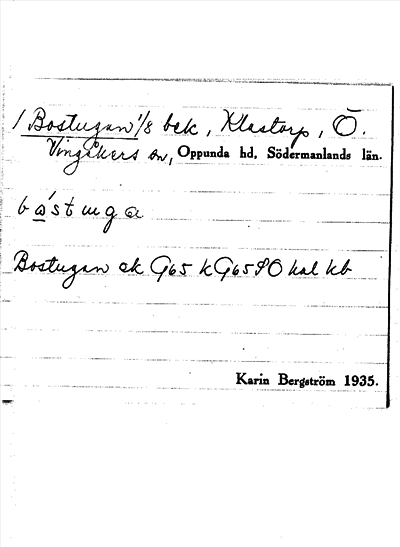 / Bostugan 1/8 bek, Klastorp, Ö.
Vingåkers sn, Oppunda hd, Södermanlands län.
bo´stuga
Bostugan ek G65 KG65 SO kal kb
Karin Bergström 1935.